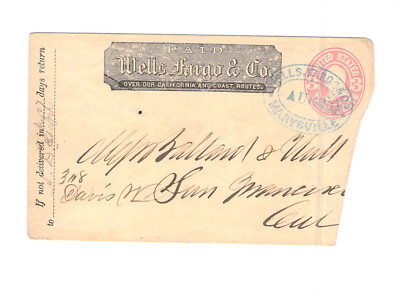 PAID
Wells Fargo & Co.
OVER OUR CALIFORNIA AND COAST ROUTES.
UNITED STATES
WELLS, FARGO & CO
MARYSVILLE
Ballard &
318
Davis St San Francisco
Cal
If not delivered in days return
to